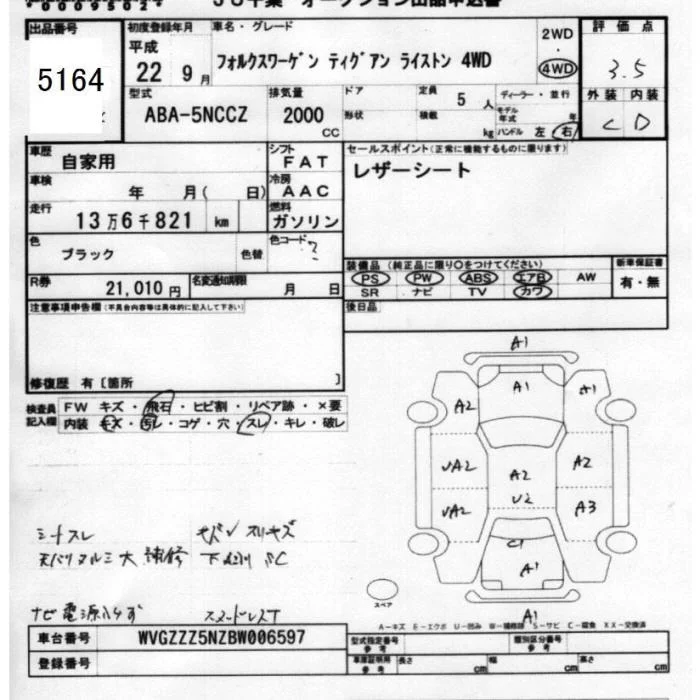 00095024 JU千葉 オークション出品申込書
出品番号 初度登録年月 車名・グレード 2WD 評価点
5164 平成 22 9月 フォルクスワーゲン ティグアン ライストン 4WD 4WD 3.5
型式 排気量 ドア 定員 ディーラー・並行 外装 内装
ABA-5NCCZ 2000 CC 5人 モデル年式 年 C D
形状 積載 kg ハンドル 左 右
車歴 自家用 シフト FAT セールスポイント(正常に機能するものに限ります)
車検 年 月( 日) 冷房 AAC レザーシート
走行 13万6千821 km 燃料 ガソリン
色 ブラック 色替 色コード ?
装備品 (純正品に限り○をつけてください) 新車保証書
R券 21,010円 名変通知期限 月 日 PS PW ABS エアB AW 有・無
SR ナビ TV カワ
注意事項申告欄(不具合内容等は具体的に記入して下さい) 後日品
修復歴 有〔箇所 〕
検査員記入欄 FW キズ・飛石・ヒビ割・リペア跡・×要
内装 キズ・汚レ・コゲ・穴・スレ・キレ・破レ
A1
A1 A1
A2
UA2 A2 A2
U2
UA2 A3
C1
A1
A1
シートスレ モバンスリキズ
天バリヌルミ大 補修 下
ナビ電源入らず スマートレスT
スペア
A-キズ E-エクボ U-凹み W-補修跡 S-サビ C-腐食 XX-交換済
車台番号 WVGZZZ5NZBW006597 型式指定番号 参考 類別区分番号 参考
登録番号 車庫証明用 参考 長さ cm 幅 cm 高さ cm